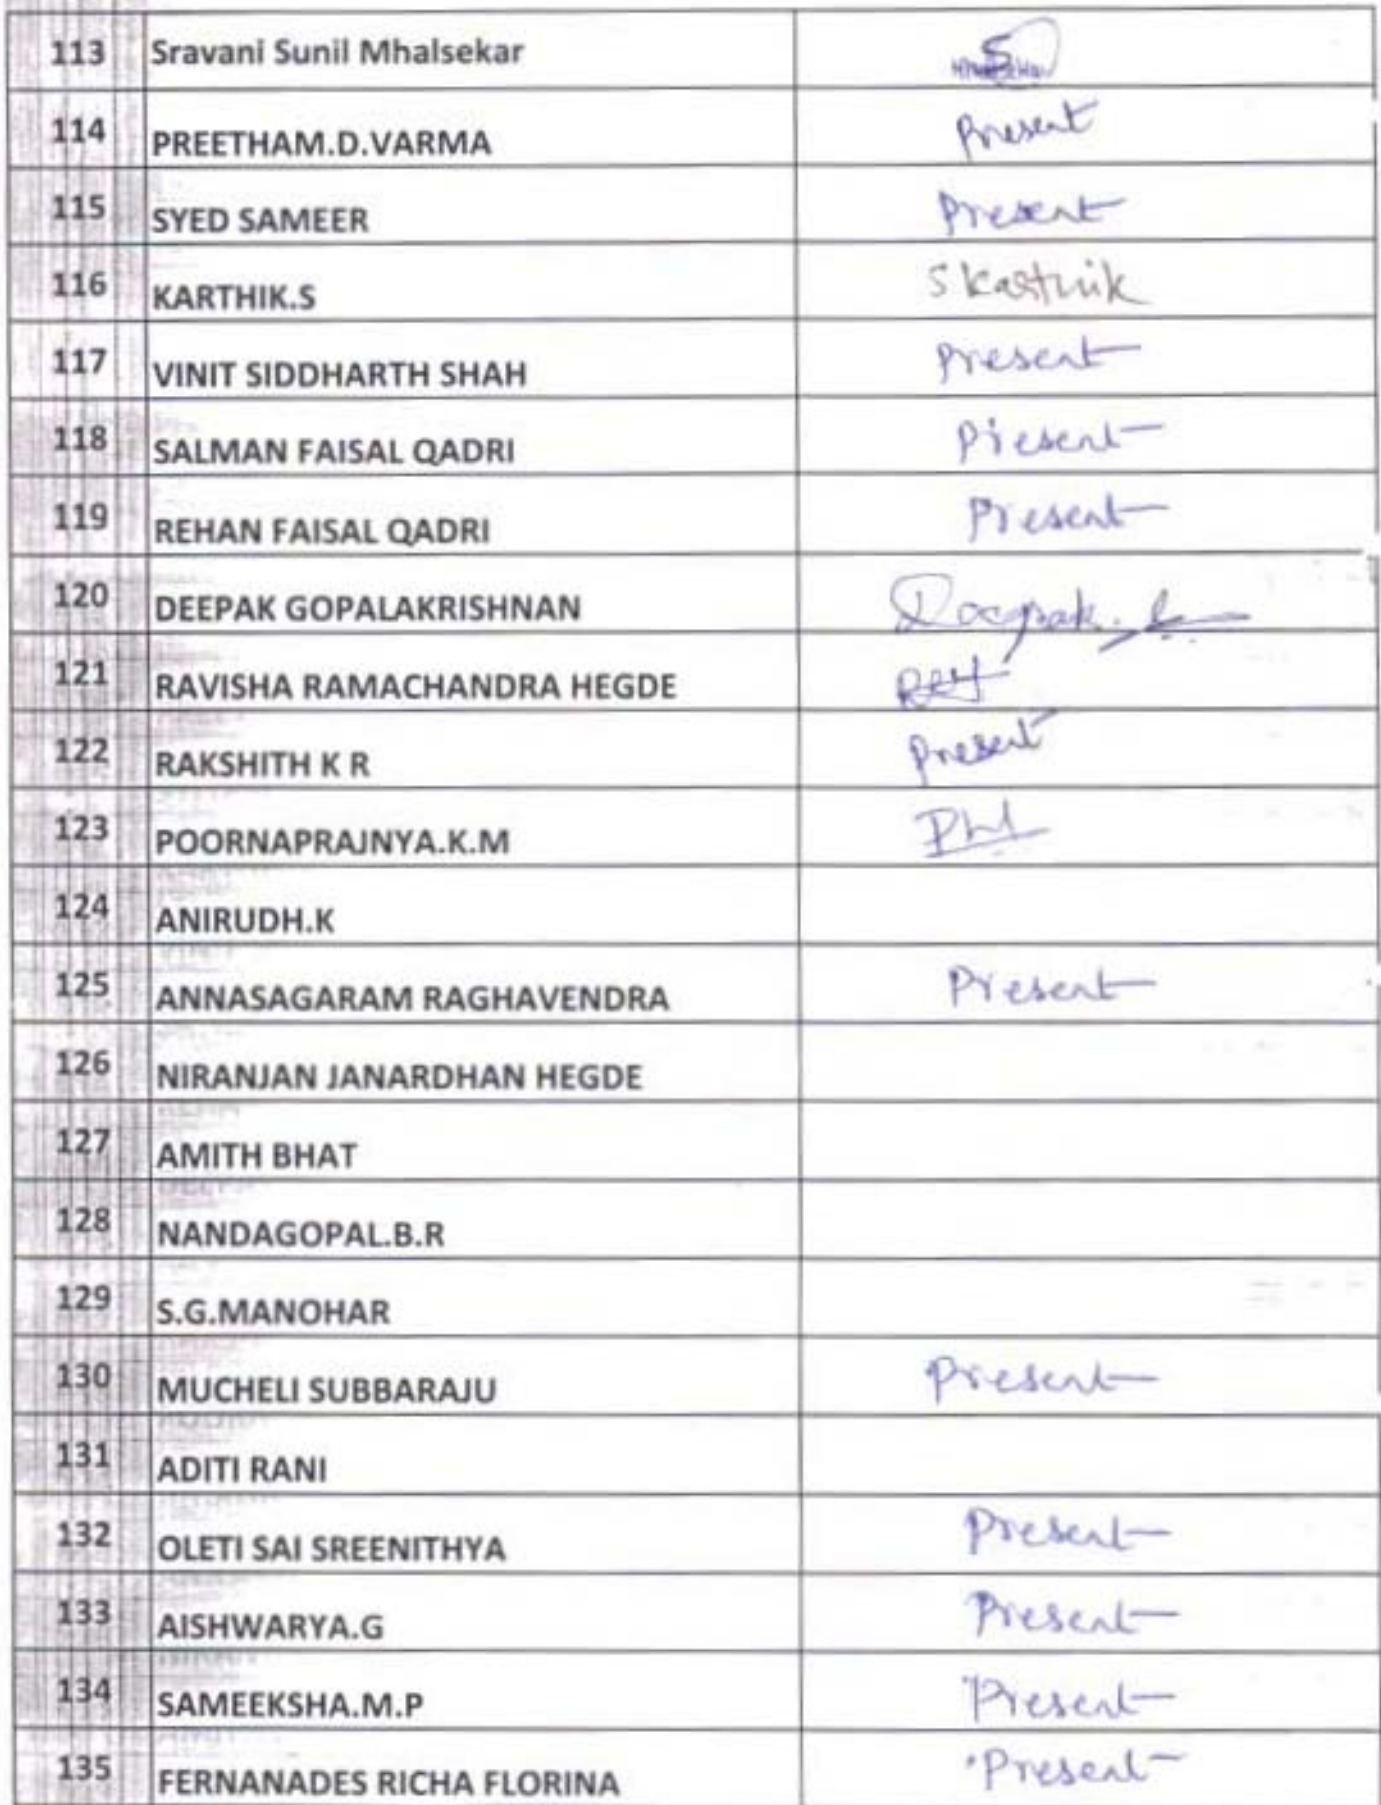 113 Sravani Sunil Mhalsekar
114 PREETHAM.D.VARMA Present
115 SYED SAMEER Present
116 KARTHIK.S S Karthik
117 VINIT SIDDHARTH SHAH Present
118 SALMAN FAISAL QADRI Present
119 REHAN FAISAL QADRI Present
120 DEEPAK GOPALAKRISHNAN Deepak.
121 RAVISHA RAMACHANDRA HEGDE
122 RAKSHITH K R Present
123 POORNAPRAJNYA.K.M
124 ANIRUDH.K
125 ANNASAGARAM RAGHAVENDRA Present
126 NIRANJAN JANARDHAN HEGDE
127 AMITH BHAT
128 NANDAGOPAL.B.R
129 S.G.MANOHAR
130 MUCHELI SUBBARAJU Present
131 ADITI RANI
132 OLETI SAI SREENITHYA Present
133 AISHWARYA.G Present
134 SAMEEKSHA.M.P Present
135 FERNANADES RICHA FLORINA Present